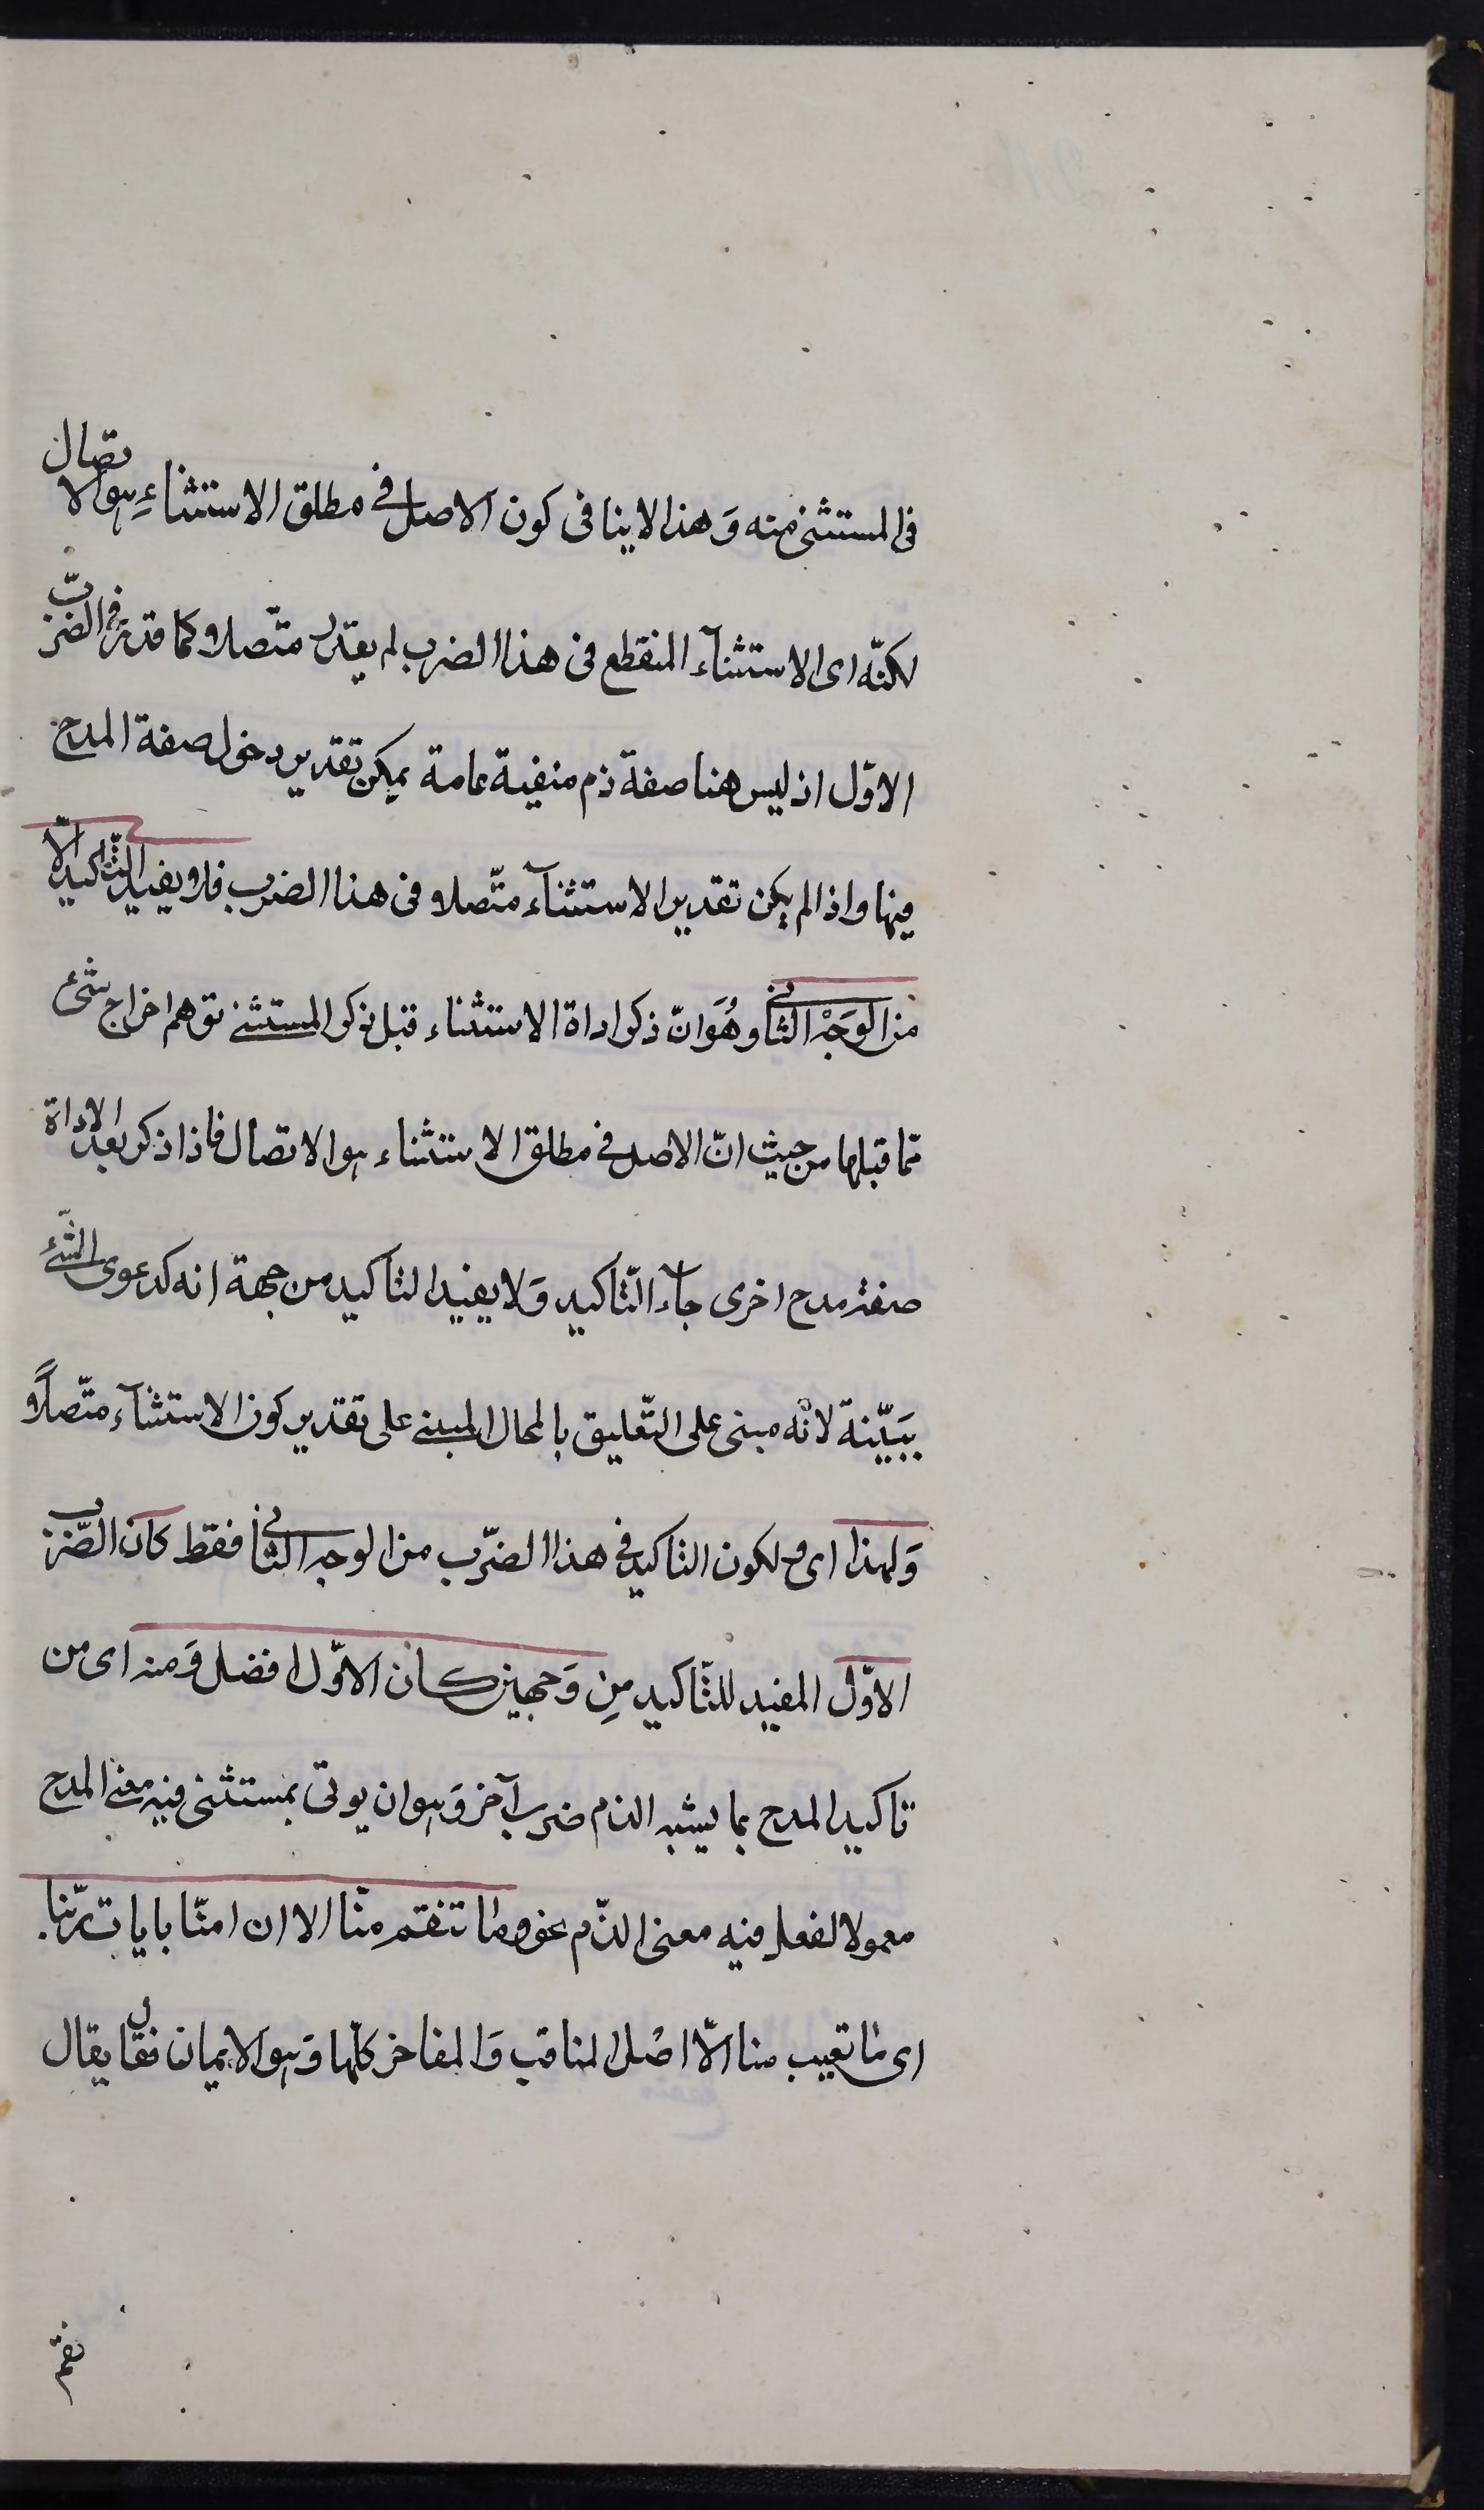 فى المستثنى منه وَهذا لا ينافى كون الاصل فى مطلق الاستثناءِ هو الاتصال
لكنّه اى الاستثنآء المنقطع فى هذا الضرب لم يقدر متّصلا كما قدر فى الضرب
الاوّل اذ ليس هنا صفة ذم منفية عامة يمكن تقدير دخول صفة المدح
فيها واذا لم يكن تقدير الاستثنآء متّصلا فى هذا الضرب فلا يفيد التّاكيد الّا
من الوَجْه الثانى وهُوَ انّ ذكر اداة الاستثناء قبل ذكر المستثنى توهم اخراج شئ
ممّا قبلها من حيث انّ الاصل فى مطلق الاستثناء هو الاتصال فاذا ذكر بعد الاداة
صفة مدح اخرى جآء التّاكيد وَلا يفيد التاكيد من جهة انه كدعوى الشّئ
ببَيّنة لانّه مبنى على التّعليق بالمحال المبنى على تقدير كون الاستثنآء متّصلاً
وَلهذا اى ولكون التاكيد فى هذا الضّرب من الوجه الثانى فقط كان الضّرب
الاوّل المفيد للتّاكيد مِن وَجهين كان الاوّل افضل وَمنه اى من
تاكيد المدح بما يشبه الذم ضرب آخر وَهو ان يوتى بمستثنى فيه معنى المدح
معمولا لفعل فيه معنى الذّم نحو وما تنقم منّا الا ان امنّا بايات ربّنا.
اى ما تعيب منا الّا اصْل المناقب وَالمفاخر كلّها وَهو الايمان فقال يقال
نقم